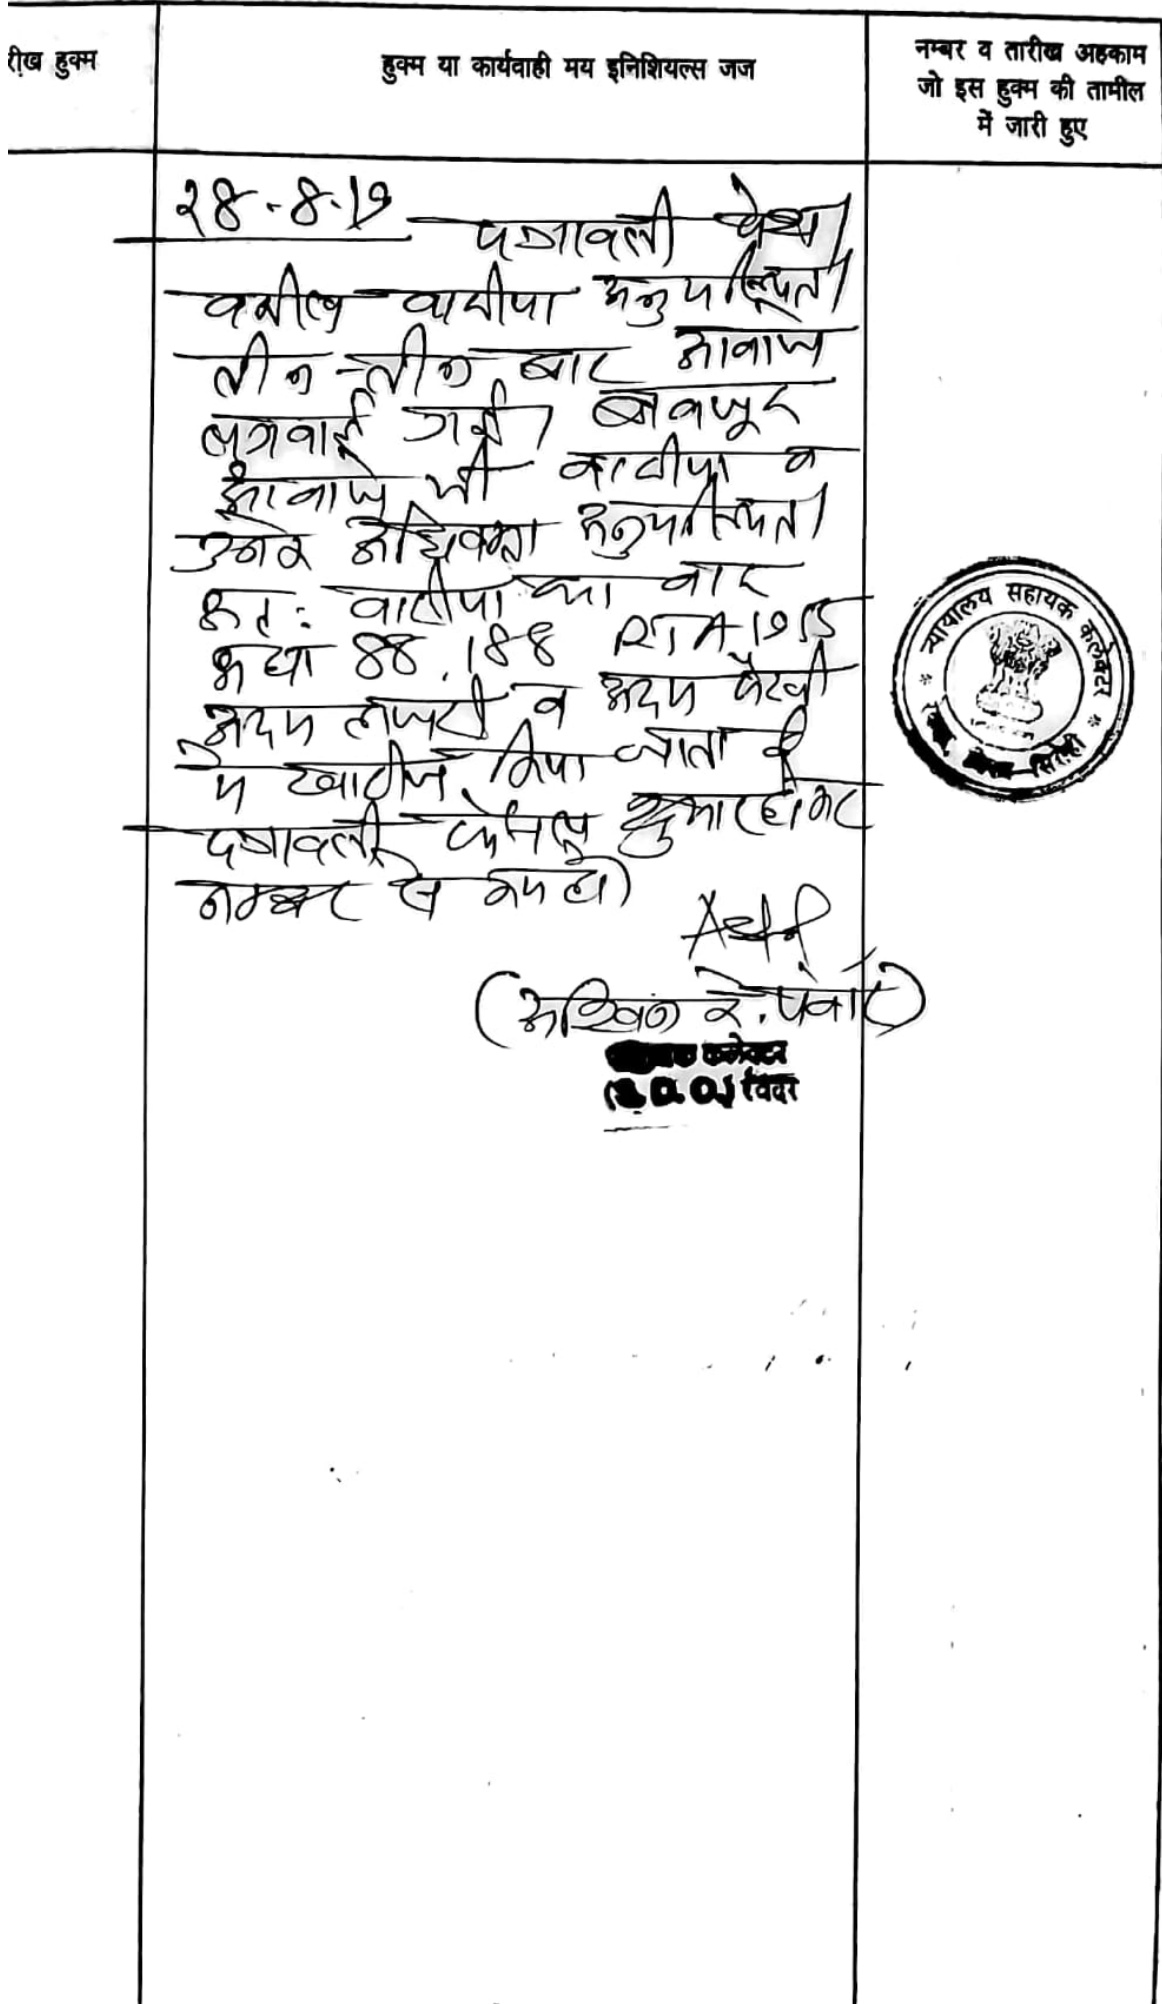 रीख हुक्म
हुक्म या कार्यवाही मय इनिशियल्स जज
नम्बर व तारीख अहकाम
जो इस हुक्म की तामील
में जारी हुए
28-8-19 पत्रावली पेश।
वकील वादीया अनुपस्थित।
तीन-तीन बार आवाज
लगवाई गई। बावजूद
आवाज भी वादीया व
उनके अधिवक्ता अनुपस्थित।
अतः वादीया का वाद
88, 188 RTA 1955
अदम हाजरी व अदम पैरवी
में खारीज किया जाता है
पत्रावली फैसल शुमार होकर
नम्बर से कम हो।
न्यायालय सहायक कलेक्टर
सिरोही
कलेक्टर
(S.D.O.) रेवदर